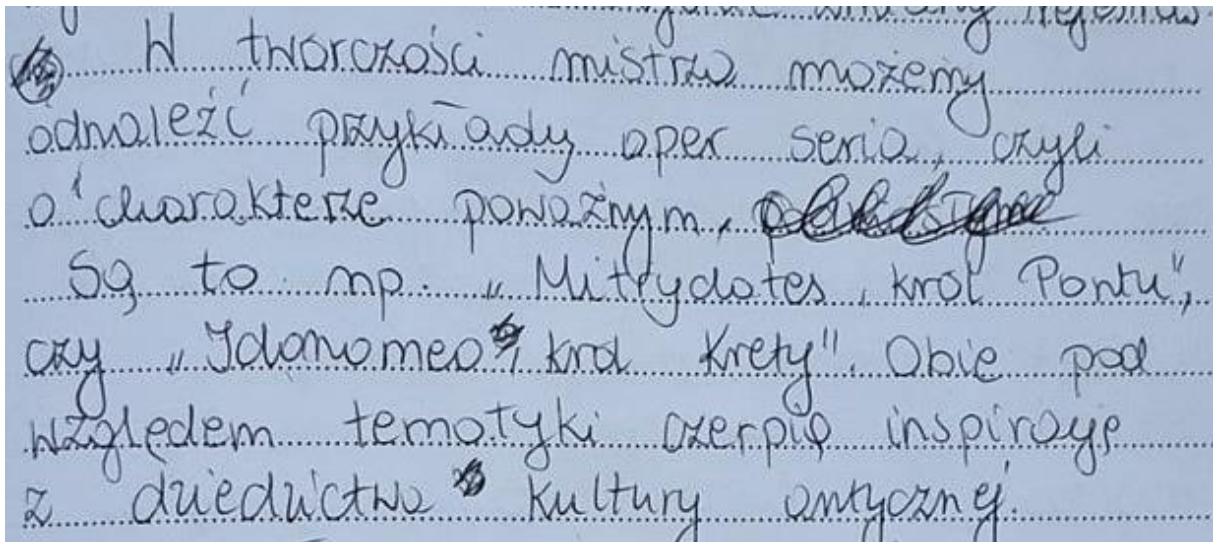 W twórczości mistrza możemy
odnaleźć przykłady oper seria, czyli
o charakterze poważnym,
Są to np. „Mitrydates, król Pontu",
czy „Idonomeo, król Krety". Obie pod
względem tematyki czerpią inspirację
z dziedzictwa kultury antycznej.